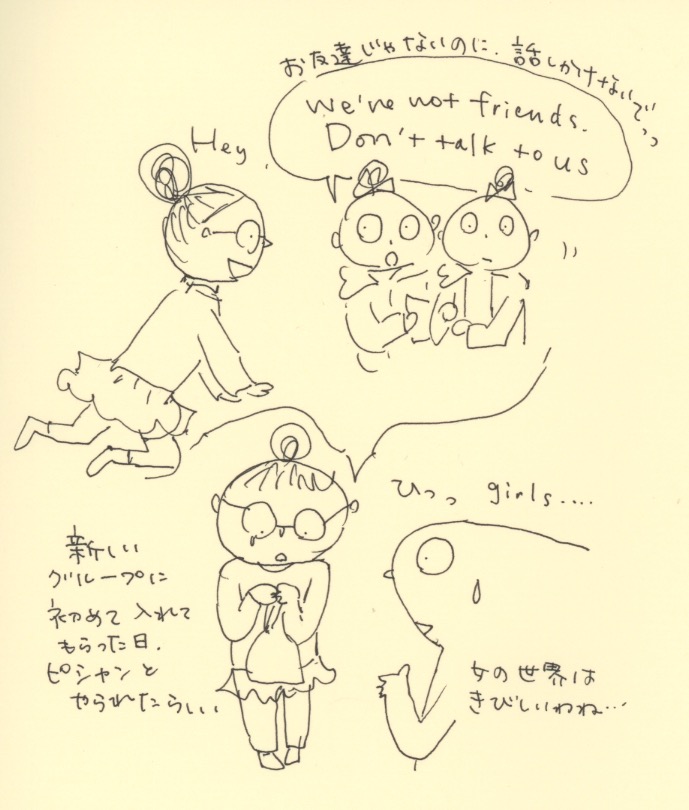 お友達じゃないのに、話しかけないでっっ
We're not friends.
Don't talk to us
Hey
ひっっ girls....
新しい
グループに
初めて 入れて
もらった日、
ピシャンと
やられたらしい
女の世界は
きびしいわね…